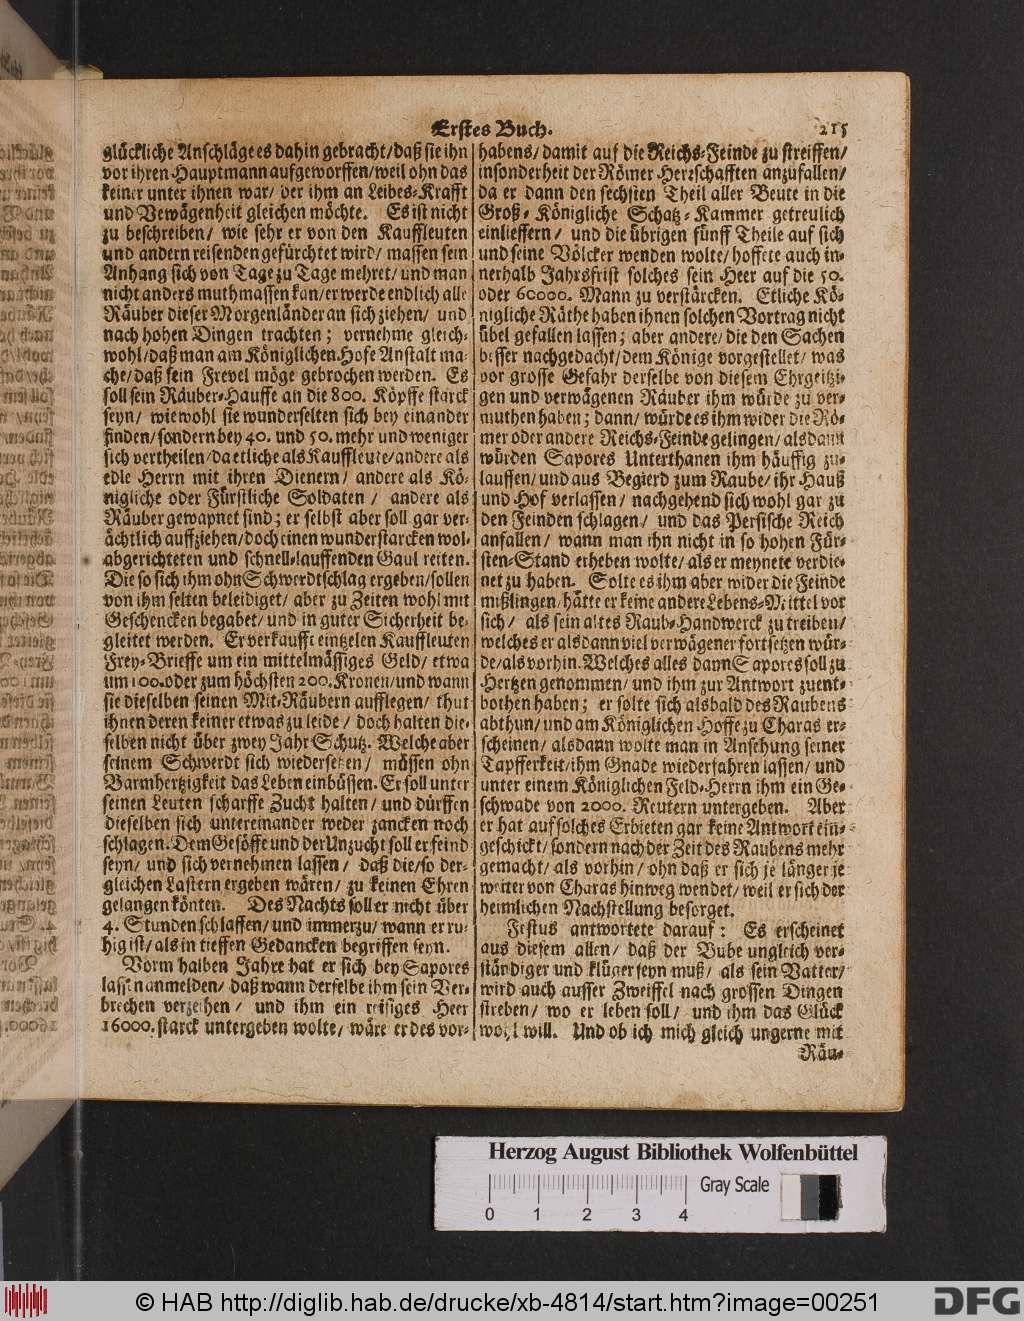 Erstes Buch. 215
glückliche Anschläge es dahin gebracht/ daß sie ihn
vor ihren Hauptmann aufgeworffen/ weil ohn das
keiner unter ihnen war/ der ihm an Leibes-Krafft
und Vewägenheit gleichen möchte. Es ist nicht
zu beschreiben/ wie sehr er von den Kauffleuten
und andern reisenden gefürchtet wird/ massen sein
Anhang sich von Tage zu Tage mehret/ und man
nicht anders muthmassen kan/ er werde endlich alle
Räuber dieser Morgenländer an sich ziehen/ und
nach hohen Dingen trachten; vernehme gleich-
wohl/ daß man am Königlichen Hofe Anstalt ma-
che/ daß sein Frevel möge gebrochen werden. Es
soll sein Räuber-Hauffe an die 800. Köpffe starck
seyn/ wiewohl sie wunderselten sich bey einander
finden/ sondern bey 40. und 50. mehr und weniger
sich vertheilen/ da etliche als Kauffleute/ andere als
edle Herrn mit ihren Dienern/ andere als Kö-
nigliche oder Fürstliche Soldaten/ andere als
Räuber gewapnet sind; er selbst aber soll gar ver-
ächtlich auffziehen/ doch einen wunderstarcken wol-
abgerichteten und schnell-lauffenden Gaul reiten.
Die so sich ihm ohn Schwerdtschlag ergeben/ sollen
von ihm selten beleidiget/ aber zu Zeiten wohl mit
Geschencken begabet/ und in guter Sicherheit be-
gleitet werden. Er verkaufft eintzelen Kauffleuten
Frey-Brieffe um ein mittelmässiges Geld/ etwa
um 100. oder zum höchsten 200. Kronen/ und wann
sie dieselben seinen Mit-Räubern aufflegen/ thut
ihnen deren keiner etwas zu leide/ doch halten die-
selben nicht über zwey Jahr Schutz. Welche aber
seinem Schwerdt sich wiedersetzen/ müssen ohn
Barmhertzigkeit das Leben einbüssen. Er soll unter
seinen Leuten scharffe Zucht halten/ und dürffen
dieselben sich untereinander weder zancken noch
schlagen. Dem Gesöffe und der Unzucht soll er feind
seyn/ und sich vernehmen lassen/ daß die/ so der-
gleichen Lastern ergeben wären/ zu keinen Ehren
gelangen könten. Des Nachts soll er nicht über
4. Stunden schlaffen/ und immerzu/ wann er ru-
hig ist/ als in tieffen Gedancken begriffen seyn.
Vorm halben Jahre hat er sich bey Sapores
lassen anmelden/ daß wann derselbe ihm sein Ver-
brechen verzeihen/ und ihm ein reisiges Heer
16000. starck untergeben wolte/ wäre er des vor-
habens/ damit auf die Reichs-Feinde zu streiffen/
insonderheit der Römer Herrschafften anzufallen/
da er dann den sechsten Theil aller Beute in die
Groß-Königliche Schatz-Kammer getreulich
einlieffern/ und die übrigen fünff Theile auf sich
und seine Völcker wenden wolte/ hoffete auch in-
nerhalb Jahrsfrist solches sein Heer auf die 50.
oder 60000. Mann zu verstärcken. Etliche Kö-
nigliche Räthe haben ihnen solchen Vortrag nicht
übel gefallen lassen; aber andere/ die den Sachen
besser nachgedacht/ dem Könige vorgestellet/ was
vor grosse Gefahr derselbe von diesem Ehrgeitzi-
gen und verwägenen Räuber ihm würde zu ver-
muthen haben; dann/ würde es ihm wider die Rö-
mer oder andere Reichs-Feinde gelingen/ alsdann
würden Sapores Unterthanen ihm häuffig zu-
lauffen/ und aus Begierd zum Raube/ ihr Hauß
und Hof verlassen/ nachgehend sich wohl gar zu
den Feinden schlagen/ und das Persische Reich
anfallen/ wann man ihn nicht in so hohen Für-
sten-Stand erheben wolte/ als er meynete verdie-
net zu haben. Solte es ihm aber wider die Feinde
mißlingen/ hätte er keine andere Lebens-Mittel vor
sich/ als sein altes Raub-Handwerck zu treiben/
welches er alsdann viel verwägener fortsetzen wür-
de/ als vorhin. Welches alles dann Sapores soll zu
Hertzen genommen/ und ihm zur Antwort zuent-
bothen haben; er solte sich alsbald des Raubens
abthun/ und am Königlichen Hoffe zu Charas er-
scheinen/ alsdann wolte man in Ansehung seiner
Tapfferkeit/ ihm Gnade wiederfahren lassen/ und
unter einem Königlichen Feld-Herrn ihm ein Ge-
schwade von 2000. Reutern untergeben. Aber
er hat auf solches Erbieten gar keine Antwort ein-
geschickt/ sondern nach der Zeit des Raubens mehr
gemacht/ als vorhin/ ohn daß er sich je länger je
weiter von Charas hinweg wendet/ weil er sich der
heimlichen Nachstellung besorget.
Festus antwortete darauf: Es erscheinet
aus diesem allen/ daß der Bube ungleich ver-
ständiger und klüger seyn muß/ als sein Vatter/
wird auch ausser Zweiffel nach grossen Dingen
streben/ wo er leben soll/ und ihm das Glück
wohl will. Und ob ich mich gleich ungerne mit
Räu-
Herzog August Bibliothek Wolfenbüttel
Gray Scale
0 1 2 3 4
© HAB http://diglib.hab.de/drucke/xb-4814/start.htm?image=00251
DFG